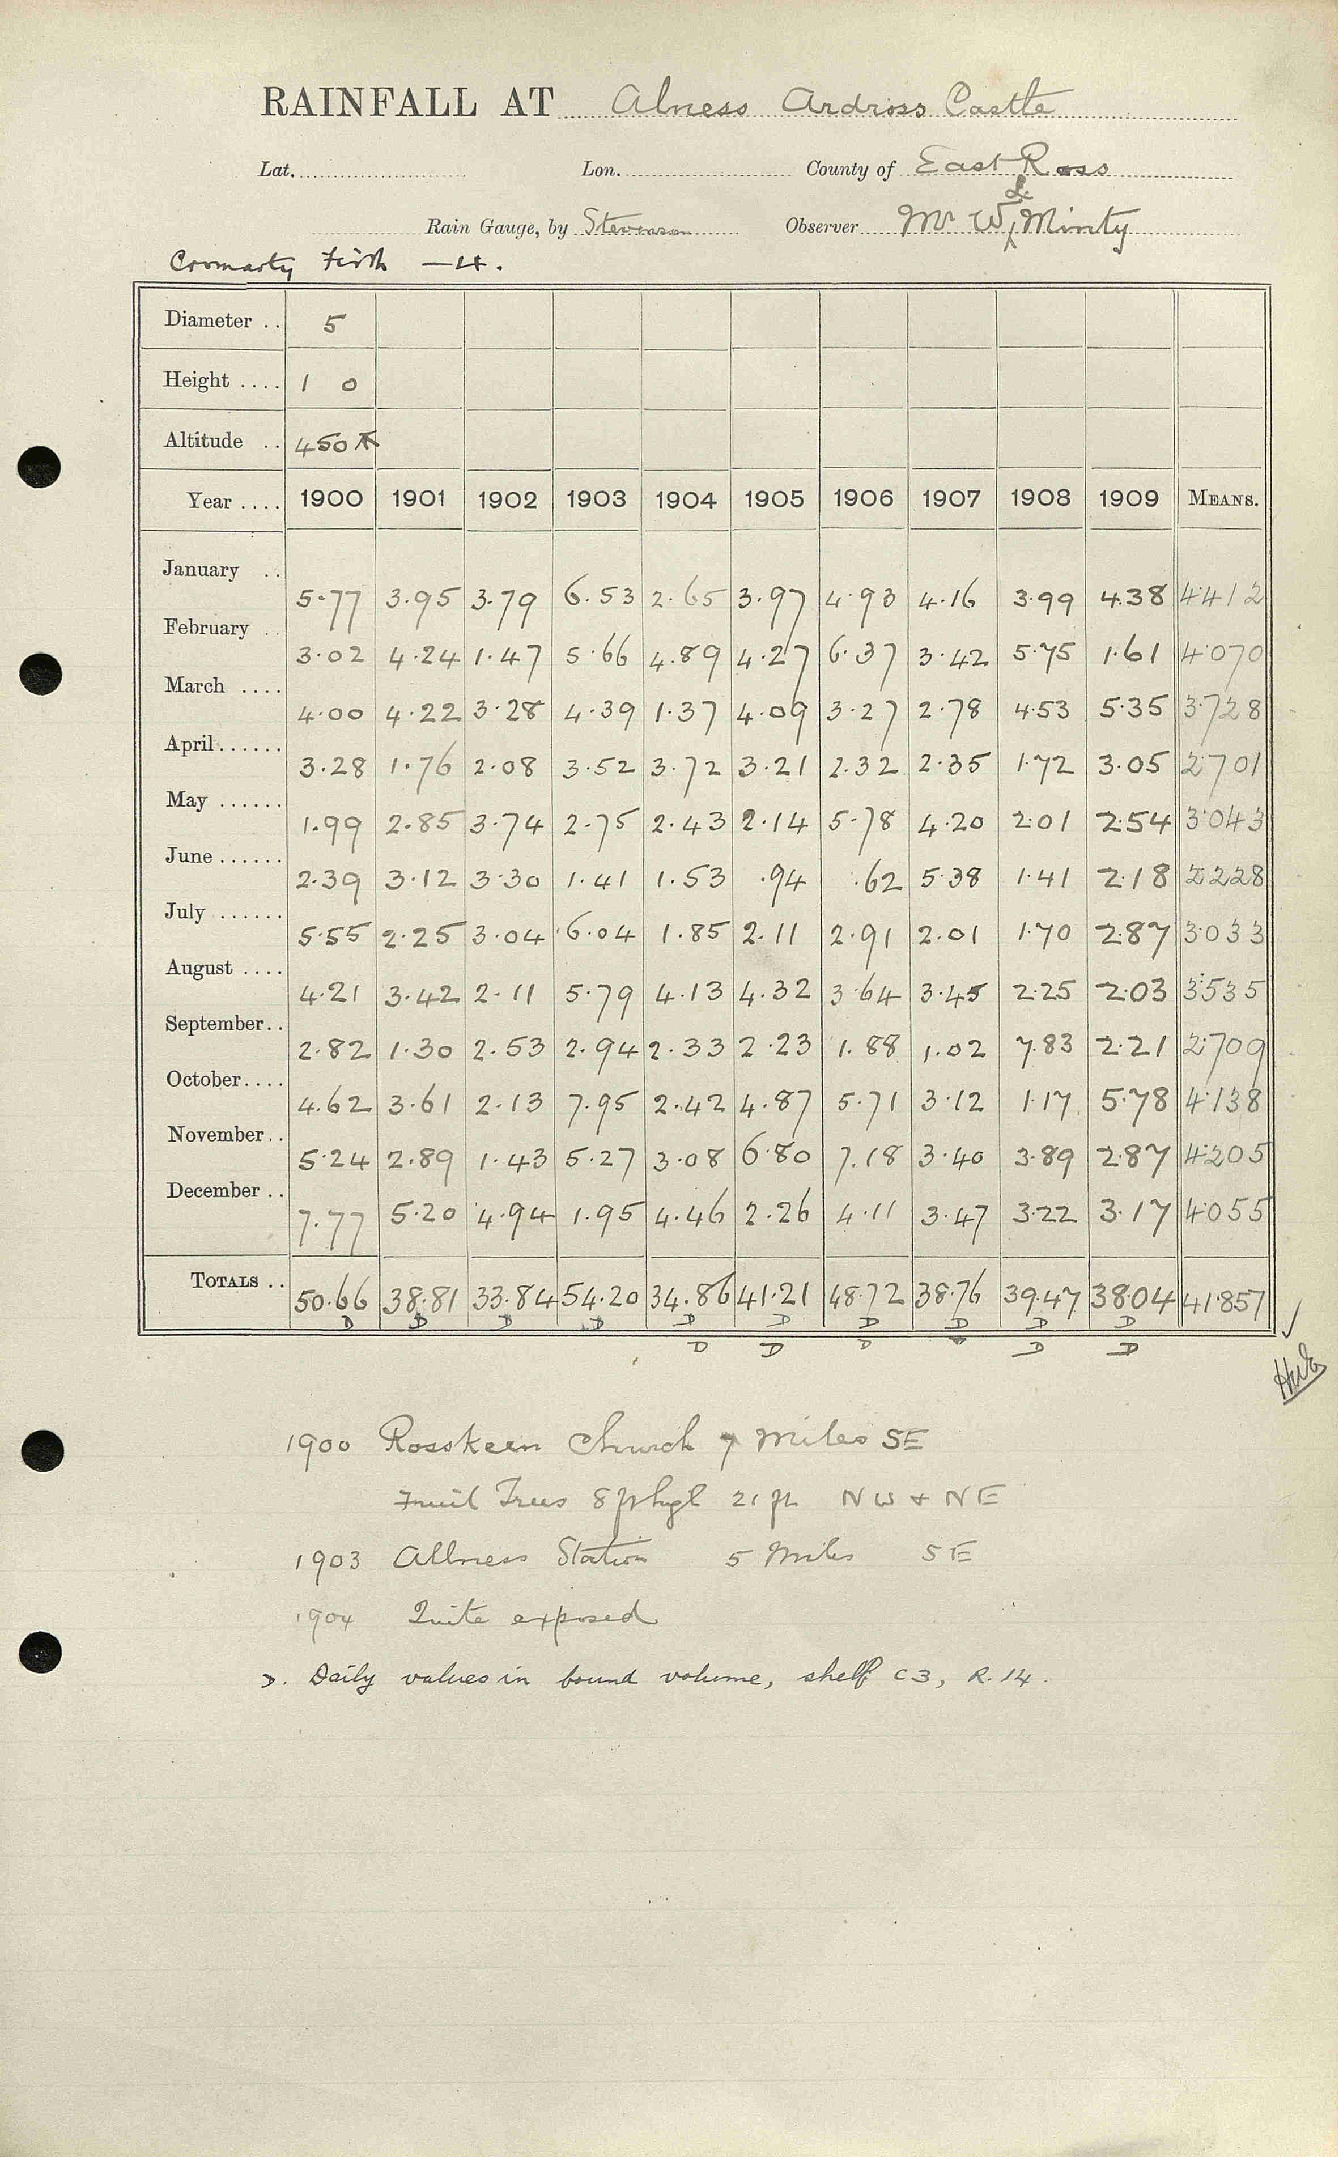 RAINFALL AT Alness Ardross Castle
Lat. Lon. County of East Ross
Rain Gauge, by Stevenson Observer Mr W, Minty
Cromarty Firth —4.
Diameter .. 5
Height .... 1 0
Altitude .. 450 ft
Year .... 1900 1901 1902 1903 1904 1905 1906 1907 1908 1909 MEANS.
January .. 5.77 3.95 3.79 6.53 2.65 3.97 4.93 4.16 3.99 4.38 4.412
February .. 3.02 4.24 1.47 5.66 4.89 4.27 6.37 3.42 5.75 1.61 4.070
March .... 4.00 4.22 3.28 4.39 1.37 4.09 3.27 2.78 4.53 5.35 3.728
April...... 3.28 1.76 2.08 3.52 3.72 3.21 2.32 2.35 1.72 3.05 2.701
May ...... 1.99 2.85 3.74 2.75 2.43 2.14 5.78 4.20 2.01 2.54 3.043
June ...... 2.39 3.12 3.30 1.41 1.53 .94 .62 5.38 1.41 2.18 2.228
July ...... 5.55 2.25 3.04 6.04 1.85 2.11 2.91 2.01 1.70 2.87 3.033
August .... 4.21 3.42 2.11 5.79 4.13 4.32 3.64 3.45 2.25 2.03 3.535
September.. 2.82 1.30 2.53 2.94 2.33 2.23 1.88 1.02 7.83 2.21 2.709
October.... 4.62 3.61 2.13 7.95 2.42 4.87 5.71 3.12 1.17 5.78 4.138
November.. 5.24 2.89 1.43 5.27 3.08 6.80 7.18 3.40 3.89 2.87 4.205
December .. 7.77 5.20 4.94 1.95 4.46 2.26 4.11 3.47 3.22 3.17 4.055
TOTALS .. 50.66 38.81 33.84 54.20 34.86 41.21 48.72 38.76 39.47 38.04 41.857
D D D D D D D D D D
D D D D D
1900 Rosskeen Church 7 Miles SE
Fruit Trees 8 ft hgt 21 ft NW + NE
1903 Allness Station 5 Miles SE
1904 Quite exposed
D. Daily values in bound volume, shelf C3, R.14.